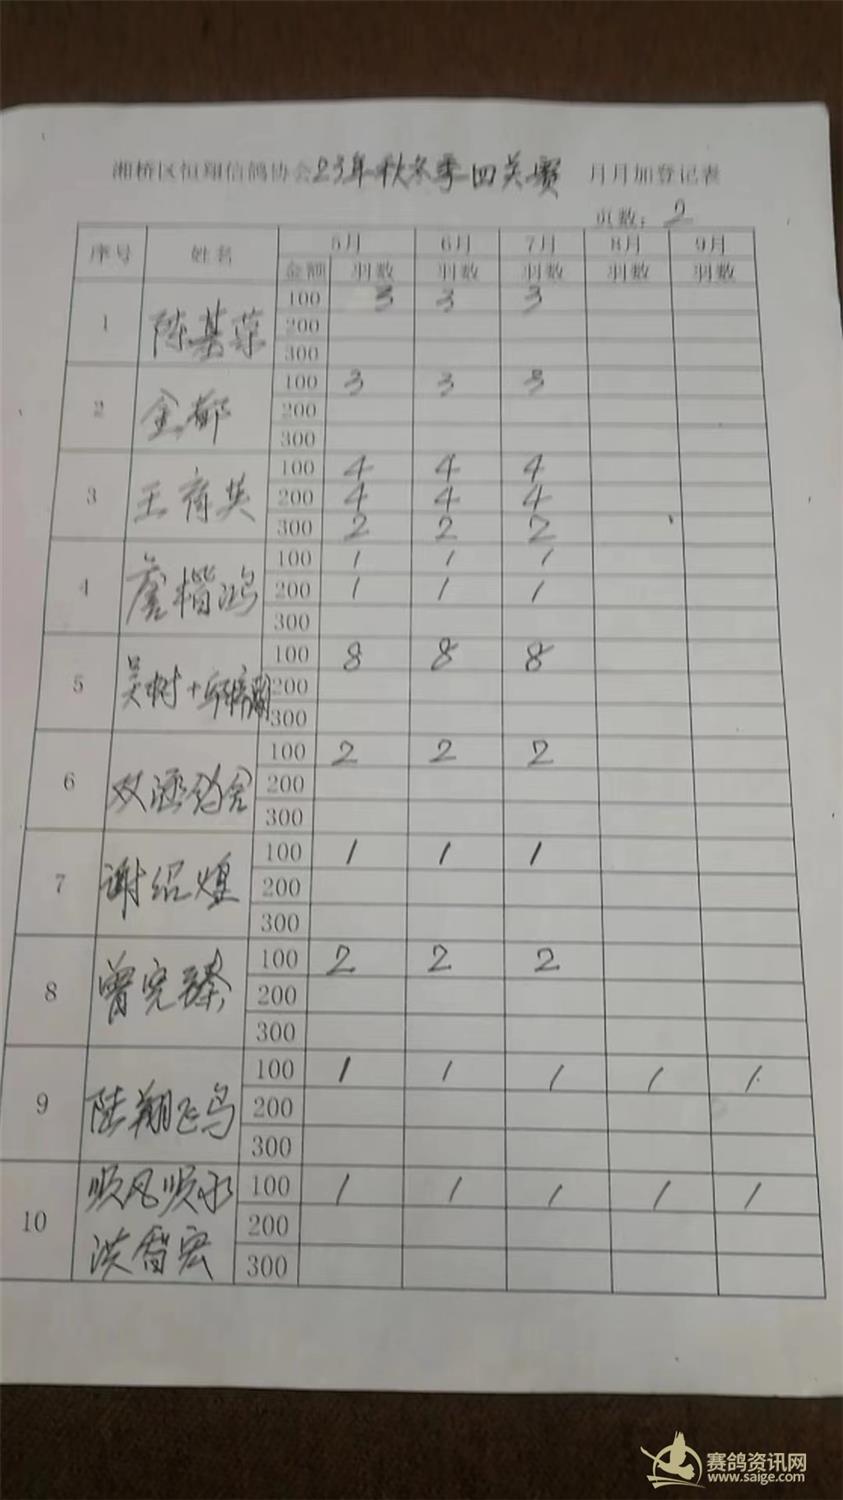 湘桥区恒翔信鸽协会23年秋冬季四关赛 月月加登记表
页数:2
序号 姓名 5月 6月 7月 8月 9月
金额 羽数 羽数 羽数 羽数 羽数
1 陈基荣 100 3 3 3
200
300
2 金都 100 3 3 3
200
300
3 王育英 100 4 4 4
200 4 4 4
300 2 2 2
4 詹楷鸿 100 1 1 1
200 1 1 1
300
5 吴树+ 100 8 8 8
200
300
6 双 鸽舍 100 2 2 2
200
300
7 谢绍煌 100 1 1 1
200
300
8 曾宪臻 100 2 2 2
200
300
9 陆翔飞鸟 100 1 1 1 1 1
200
300
10 顺风顺水 100 1 1 1 1 1
洪智宏 200
300
赛鸽资讯网
www.saige.com